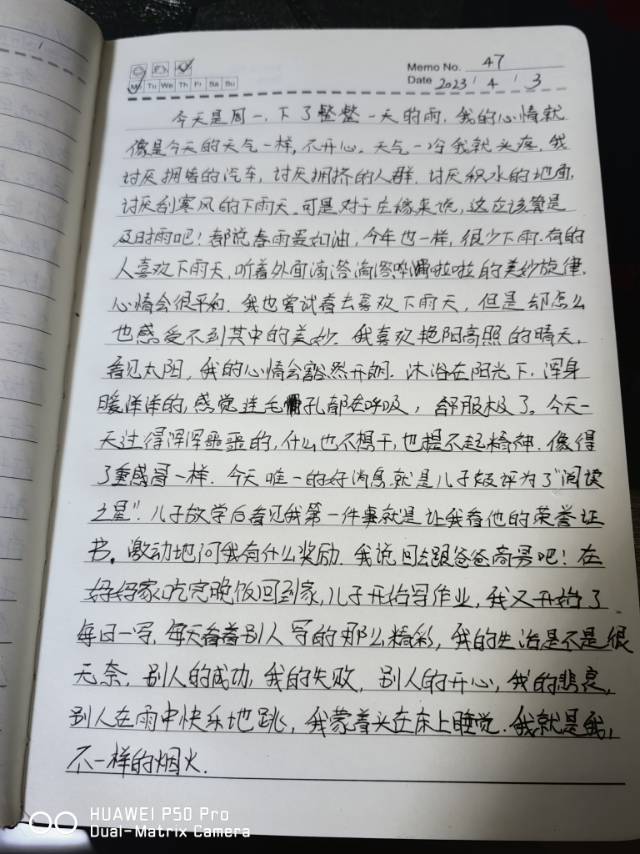 Memo No. 47
Mo Tu We Th Fr Sa Su
Date 2023 / 4 / 3
今天是周一,下了整整一天的雨,我的心情就
像是今天的天气一样,不开心。天气一冷我就头疼,我
讨厌拥堵的汽车,讨厌拥挤的人群,讨厌积水的地面,
讨厌刮寒风的下雨天,可是对于庄稼来说,这应该算是
及时雨吧!都说春雨贵如油,今年也一样,很少下雨.有的
人喜欢下雨天,听着外面滴滴哗啦啦的美妙旋律,
心情会很平和.我也尝试着去喜欢下雨天,但是却怎么
也感受不到其中的美妙.我喜欢艳阳高照的晴天,
看见太阳,我的心情会豁然开朗.沐浴在阳光下,浑身
暖洋洋的,感觉连毛孔都在呼吸,舒服极了。今天一
天过得浑浑噩噩的,什么也不想干,也提不起精神.像得
了重感冒一样.今天唯一的好消息就是儿子被评为了“阅读
之星”.儿子放学后看见我第一件事就是让我看他的荣誉证
书。激动地问我有什么奖励.我说回去跟爸爸商量吧!在
好好家吃完晚饭回到家,儿子开始写作业,我又开始了
每日一写,每天看着别人写的那么精彩,我的生活是不是很
无奈,别人的成功,我的失败,别人的开心,我的悲哀,
别人在雨中快乐地跳,我蒙着头在床上睡觉.我就是我,
不一样的烟火.
HUAWEI P50 Pro
Dual-Matrix Camera